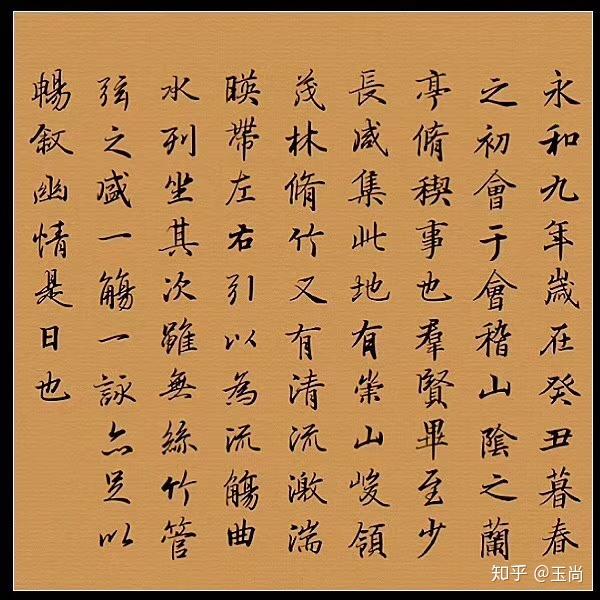 永和九年歲在癸丑暮春
之初會于會稽山陰之蘭
亭脩稧事也羣賢畢至少
長咸集此地有崇山峻領
茂林脩竹又有清流激湍
暎帶左右引以為流觴曲
水列坐其次雖無絲竹管
弦之盛一觴一詠亦足以
暢敘幽情是日也
知乎 @玉尚